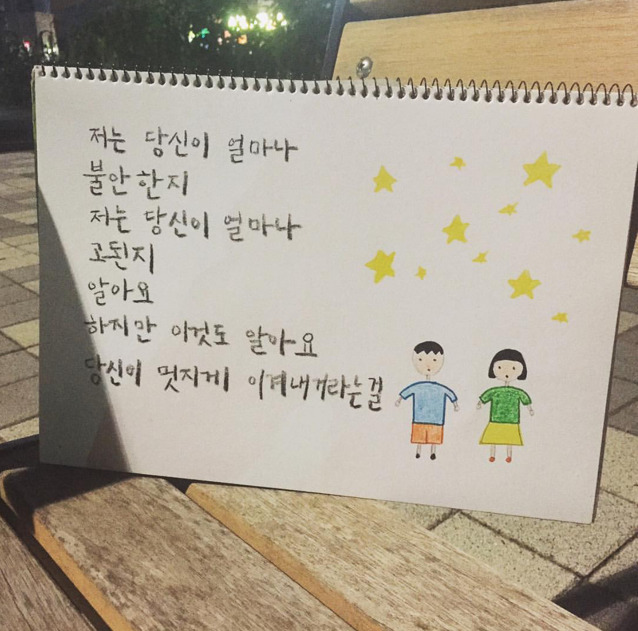 저는 당신이 얼마나
불안한지
저는 당신이 얼마나
고된지
알아요
하지만 이것도 알아요
당신이 멋지게 이겨내거라는걸